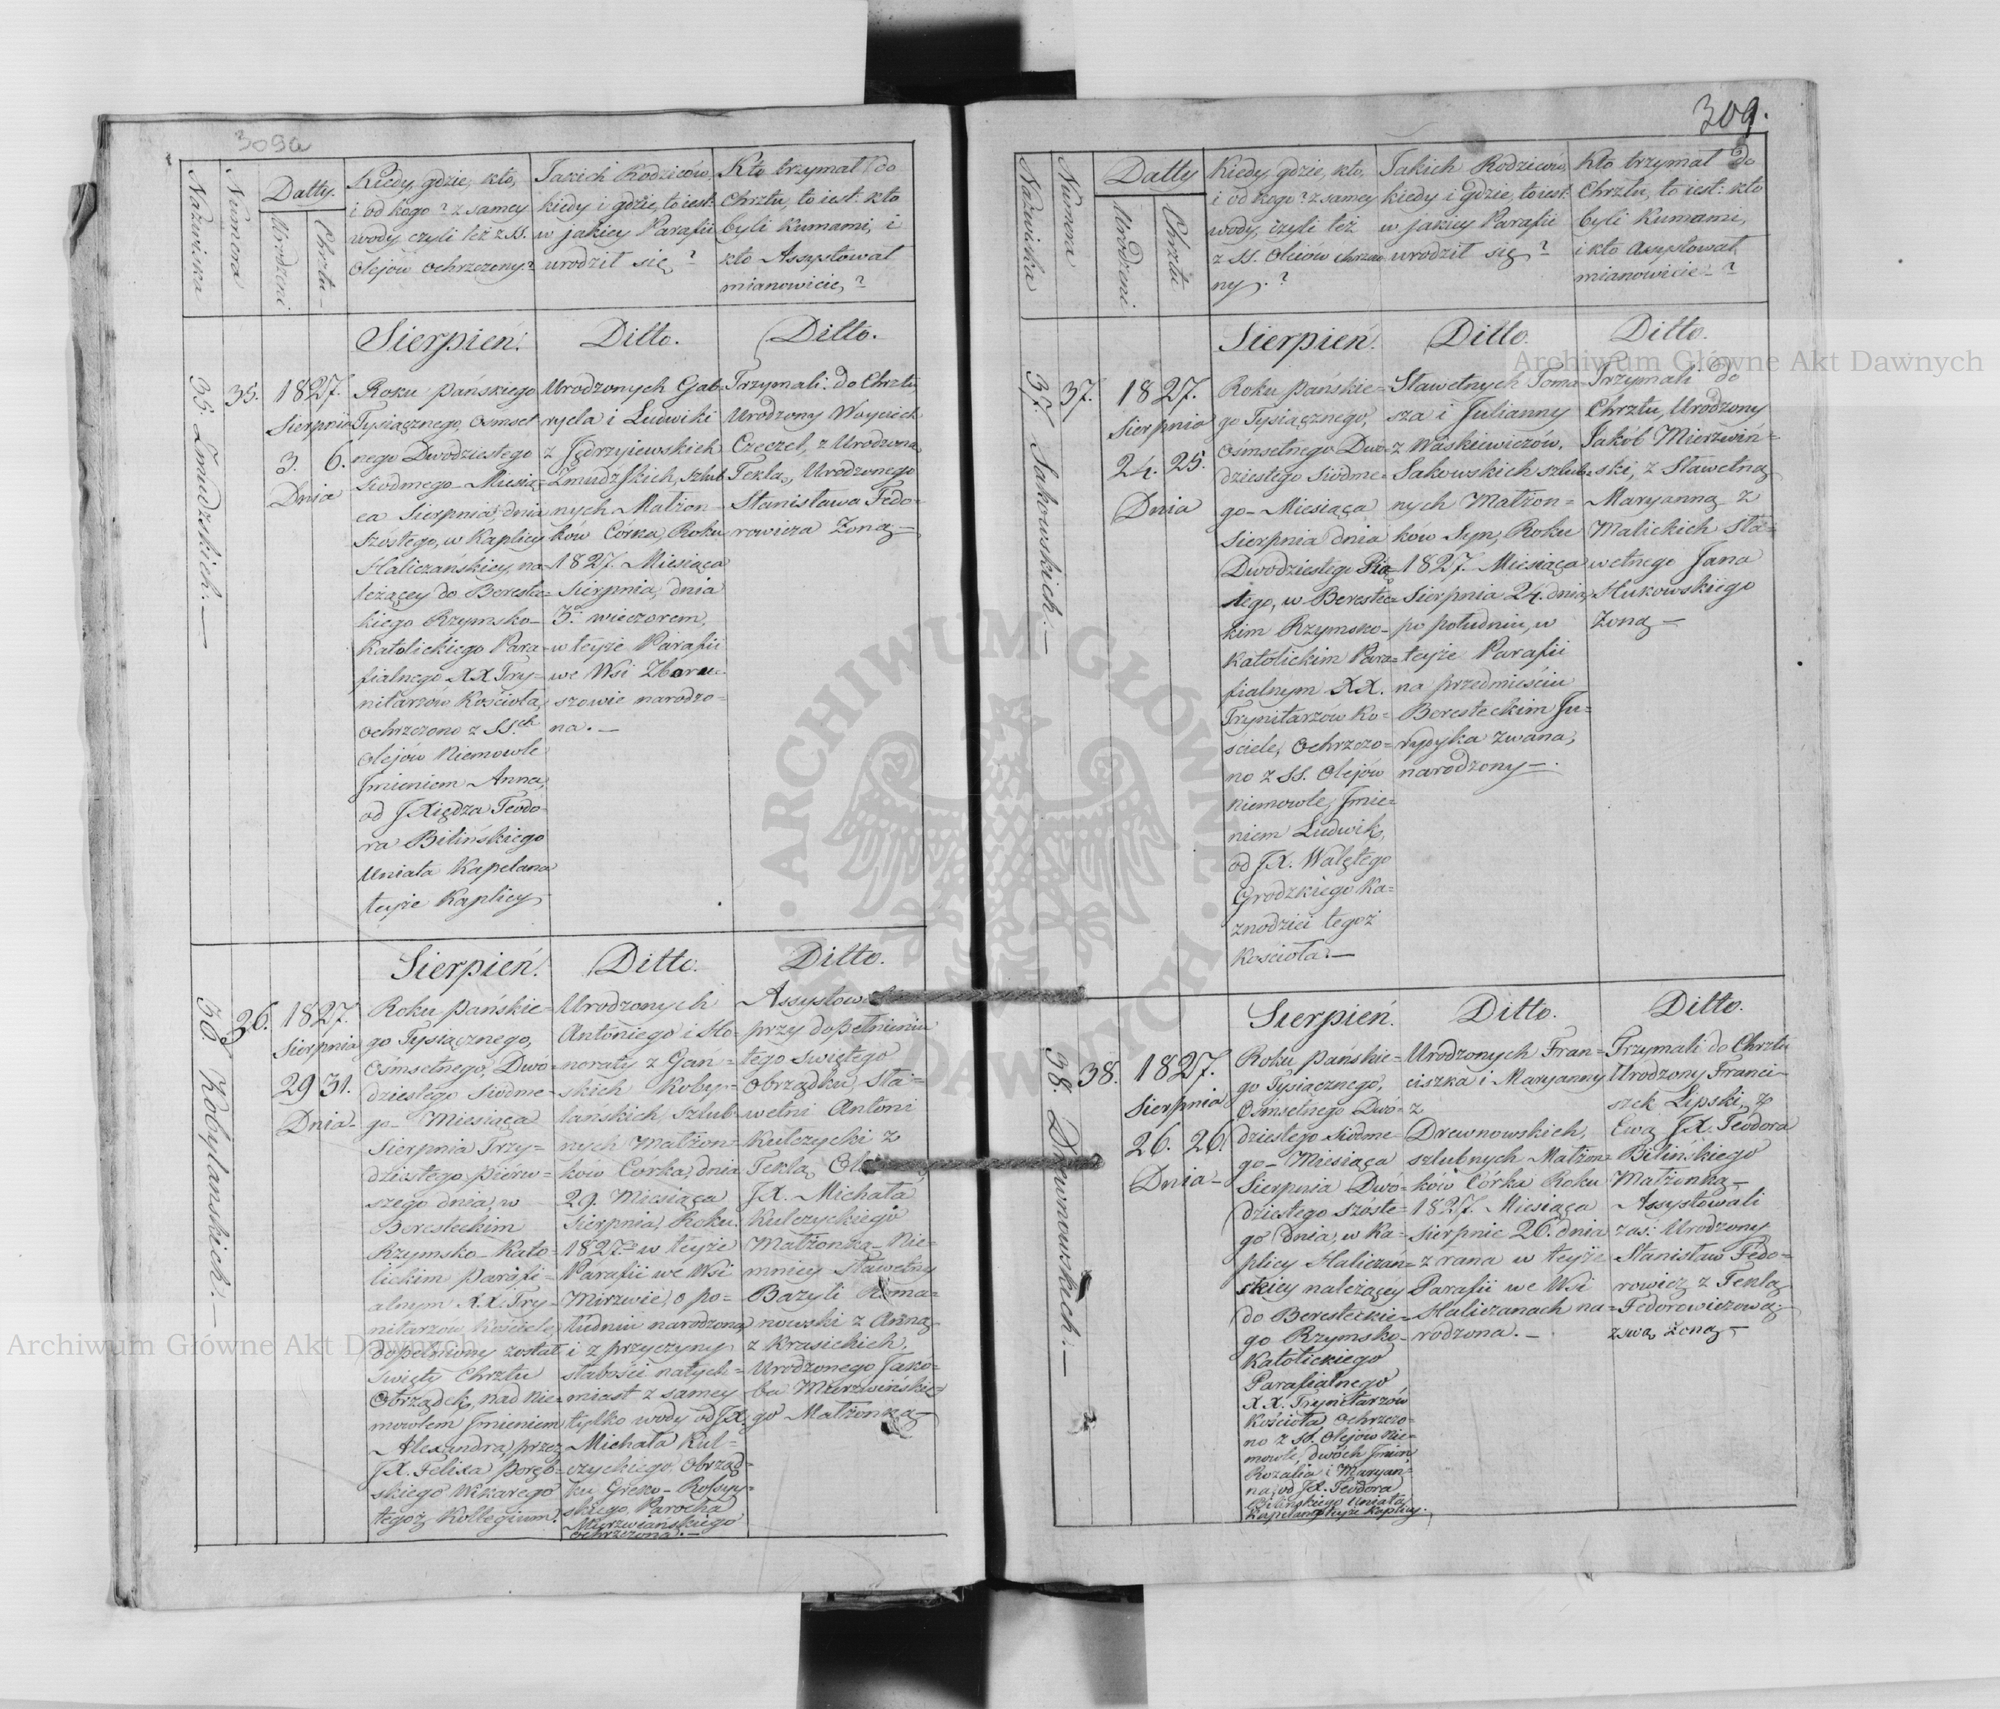 309a
Nazwiska
Numera
Datty.
Urodzeni
Chrztu
Kiedy, gdzie, kto,
i od kogo? z samey
wody, czyli też z SS.
Olejów ochrzczony?
Jakich Rodziców,
kiedy i gdzie, to iest:
w jakiey Parafii
urodził się?
Kto trzymał do
Chrztu, to iest: kto
byli Kumami, i
kto Assystował
mianowicie?
35. Żmudzkich.
35.
1827.
Sierpnia
3. 6.
Dnia
Sierpień.
Roku Pańskiego
Tysiącznego, Ośmset
nego Dwudziestego
siódmego Miesią=
ca Sierpnia, dnia
szóstego, w Kaplicy
Haliczańskiey, na=
leżącey do Berestec=
kiego Rzymsko=
Katolickiego Para=
fialnego XX Try=
nitarzów Kościoła,
ochrzczono z SSch
Olejów Niemowle
Jmieniem Anna,
od JXiędza Teodo=
ra Bilińskiego
Uniata Kapelana
teyże Kaplicy
Ditto.
Urodzonych Gab=
ryela i Ludwiki
z Jędrzyiewskich
Żmudzkich, szlub
nych Małżon=
ków Córka, Roku
1827. Miesiąca
Sierpnia, dnia
3. wieczorem,
w teyże Parafii
we Wsi Zboru=
szowie narodzo=
na.
Ditto.
Trzymali: do Chrztu,
Urodzony Woyciech
Czeczel, z Urodzoną
Teklą, Urodzonego
Stanisława Fedo=
rowicza Żoną
36. Kobylanskich.
36.
1827.
Sierpnia
29 31.
Dnia
Sierpień.
Roku Pańskie=
go Tysiącznego,
Ośmsetnego, Dwó=
dziestego siódme=
go Miesiąca
Sierpnia Trzy=
dziestego pierw=
szego dnia, w
Beresteckim
Rzymsko Kato=
lickim Parafi=
alnym XX. Try=
nitarzów Kościele,
dopełniony został
święty Chrztu
Obrządek, nad Nie=
mowlem Jmieniem
Alexandra, przez
JX. Felixa Poręb=
skiego Wikarego
tegoż Kollegium.
Ditto.
Urodzonych
Antoniego i Ho=
noraty z Gan=
skich Koby=
lanskich, szlub=
nych Małżon=
ków Córka, dnia
29. Miesiąca
Sierpnia, Roku
1827. w teyże
Parafii we Wsi
Mirzwie, o po=
łudniu narodzona,
i z przyczyny
słabości natych=
miast z samey
tylko wody od JX.
Michała Kul=
czyckiego, Obrząd=
ku Greko-Rossyy=
skiego Parocha
Murzwiańskiego
ochrzczona.
Ditto.
Assystow
przy dopełnieniu
tego świętego
Obrządku, Sła=
wetni Antoni
Kulczycki z
Teklą
JX. Michała
Kulczyckiego
Małżonką. Nie=
mniey Sławetny
Bazyli Roma=
nowski z Anną
z Krasickich,
Urodzonego Jako=
ba Murzwińskie=
go Małżonką
309.
Nazwiska
Numera
Datty
Urodzeni
Chrztu
Kiedy, gdzie, kto,
i od kogo? z samey
wody, czyli też
z SS. Olejów chrzczo
ny.?
Jakich Rodziców,
kiedy i gdzie, to iest:
w jakiey Parafii
urodził się?
Kto trzymał do
Chrztu, to iest: kto
byli Kumami,
i kto Asystował
mianowicie?
37. Sakowskich.
37.
1827.
Sierpnia
24. 25.
Dnia
Sierpień.
Roku Pańskie=
go Tysiącznego,
Ośmsetnego Dwó=
dziestego Siódme=
go Miesiąca
Sierpnia dnia
Dwódziestego Pią=
tego, w Berestec=
kim Rzymsko=
Katolickim Para=
fialnym XX.
Trynitarzów Ko=
ściele, Ochrzczo=
no z SS. Olejów
niemowle, Jmie=
niem Ludwik,
od JX. Walętego
Grodzkiego Ka=
znodziei tegoż
Kościoła.
Ditto.
Sławetnych Toma
sza i Julianny
z Waskiewiczów,
Sakowskich szlub=
nych Małżon=
ków Syn, Roku
1827 Miesiąca
Sierpnia 24. dnia,
po południu, w
teyże Parafii
na przedmieściu
Beresteckim Ju=
rydyka zwana,
narodzony.
Ditto.
Trzymali do
Chrztu, Urodzony
Jakób Mierzwiń=
ski, z Sławetną
Maryanną z
Malickich Sła=
wetnego Jana
Hukowskiego
Żoną
38. Drewnowskich.
38.
1827.
Sierpnia
26. 26.
Dnia
Sierpień.
Roku Pańskie=
go Tysiącznego,
Ośmsetnego Dwó=
dziestego siódme=
go Miesiąca
Sierpnia Dwó=
dziestego szóste=
go dnia, w Ka=
plicy Haliczań=
skiey należącey
do Beresteckie=
go Rzymsko=
Katolickiego
Parafialnego
XX. Trynitarzów
Kościoła, ochrzczo=
no z SS. Olejów nie=
mowle, dwóch Jmion
Rozalia i Maryan=
na, od JX. Teodora
Bilińskiego Uniaty
Kapelana teyże Kaplicy.
Ditto.
Urodzonych Fran=
ciszka i Maryanny
z
Drewnowskich,
szlubnych Małżon=
ków Córka Roku
1827. Miesiąca
sierpnie 26. dnia
z rana w teyże
Parafii we Wsi
Haliczanach na=
rodzona.
Ditto.
Trzymali do Chrztu
Urodzony Franci=
szek Lipski, z
Ewą JX. Teodora
Bilińskiego
Małżonką
Assystowali
zaś: Urodzony
Stanisław Fedo=
rowicz z Teklą
Fedorowiczową
zswą Żoną
Archiwum Główne Akt Dawnych
Archiwum Główne Akt Dawnych
ARCHIWUM GŁÓWNE AKT DAWNYCH